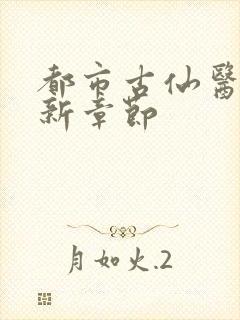 都市古仙醫
新章節
月如火.2